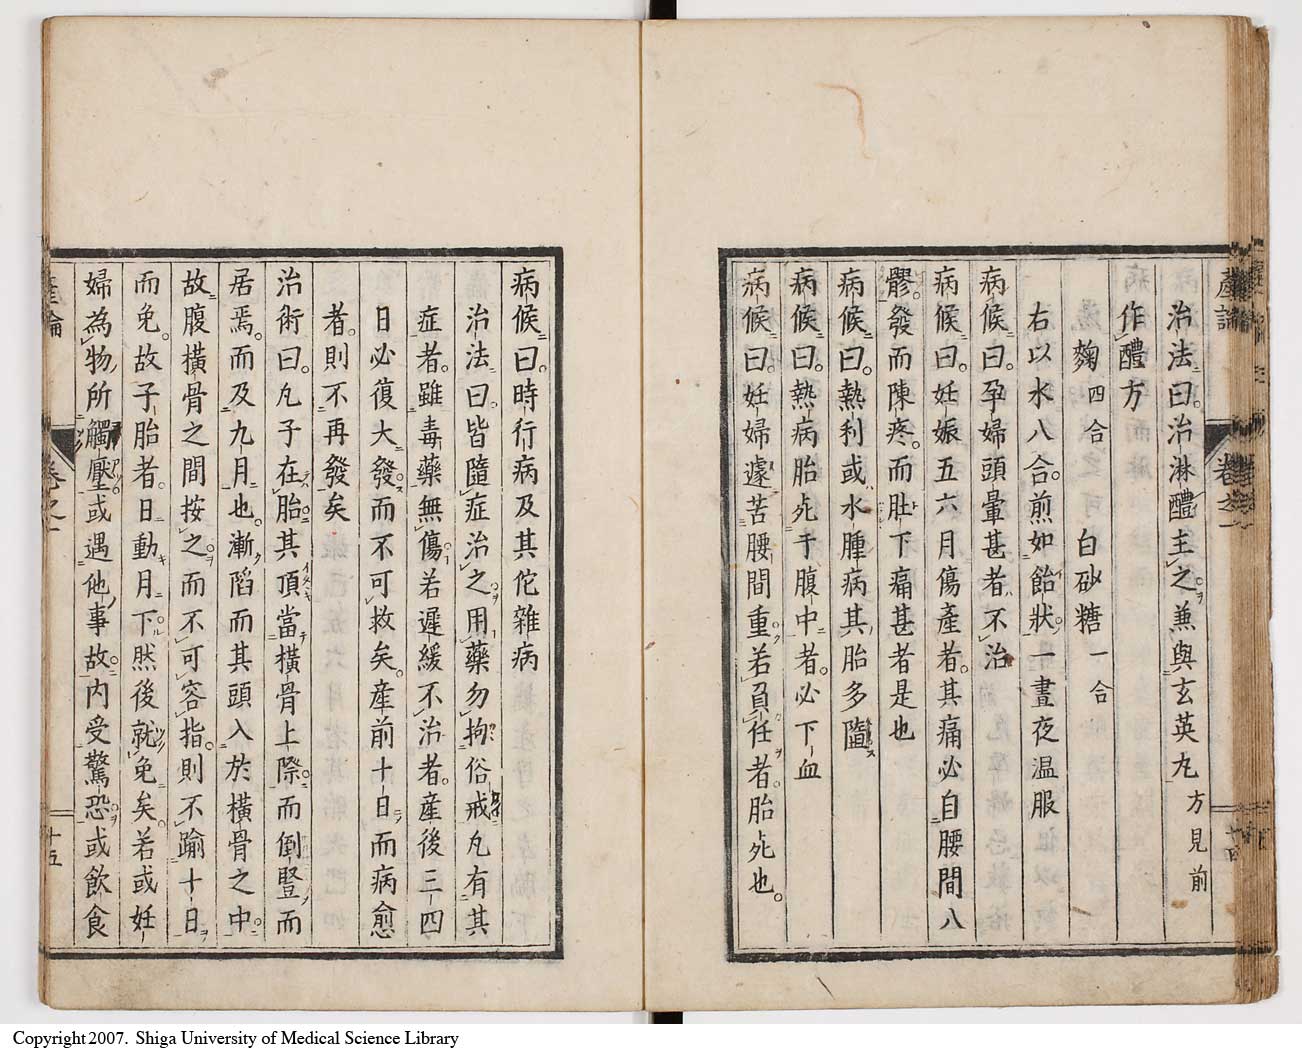 產論
卷之一
十四
治法曰治淋醴主之兼與玄英丸方見前
作醴方
麴四合 白砂糖一合
右以水八合煎如飴狀一晝夜温服
病候曰孕婦頭暈甚者不治
病候曰妊娠五六月傷產者其痛必自腰間八
髎發而陳疼而肚下痛甚者是也
病候曰熱利或水腫病其胎多隘
病候曰熱病胎死于腹中者必下血
病候曰妊婦遽苦腰間重若負任者胎死也
病候曰時行病及其佗雜病
治法曰皆隨症治之用藥勿拘俗戒凡有其
症者雖毒藥無傷若遲緩不治者產後三四
日必復大發而不可救矣產前十日而病愈
者則不再發矣
治術曰凡子在胎其頂當橫骨上際而倒豎而
居焉而及九月也漸陷而其頭入於橫骨之中
故腹橫骨之間按之而不可容指則不踰十日
而免故子胎者日動月下然後就免矣若或妊
婦為物所觸壓或遇他事故內受驚恐或飲食
產論
卷之一
十五
Copyright 2007. Shiga University of Medical Science Library